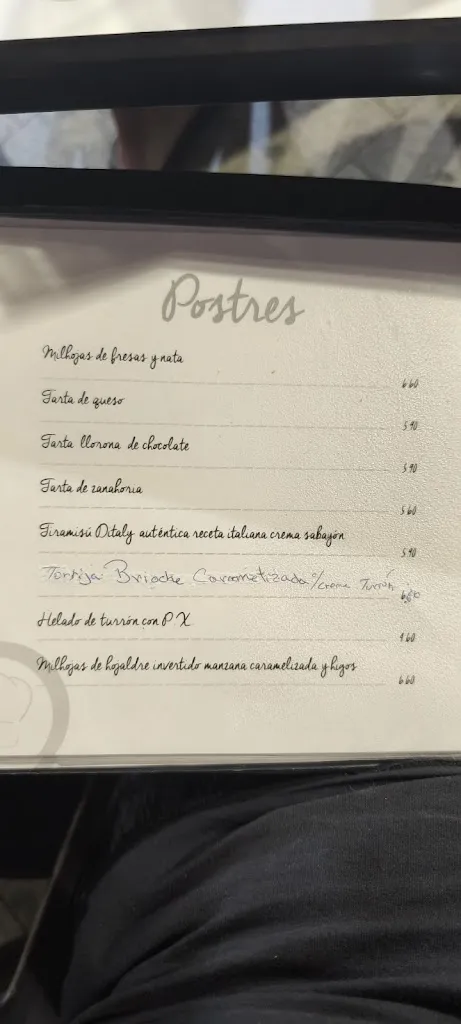 Postres
Milhojas de fresas y nata
6.60
Tarta de queso
5.90
Tarta llorona de chocolate
5.90
Tarta de zanahoria
5.60
Tiramisú Ditaly auténtica receta italiana crema sabayón
5.90
Torrija Brioche Caramelizada c/crema Turrón
Helado de turrón con P.X.
4.60
Milhojas de hojaldre invertido manzana caramelizada y higos
6.60